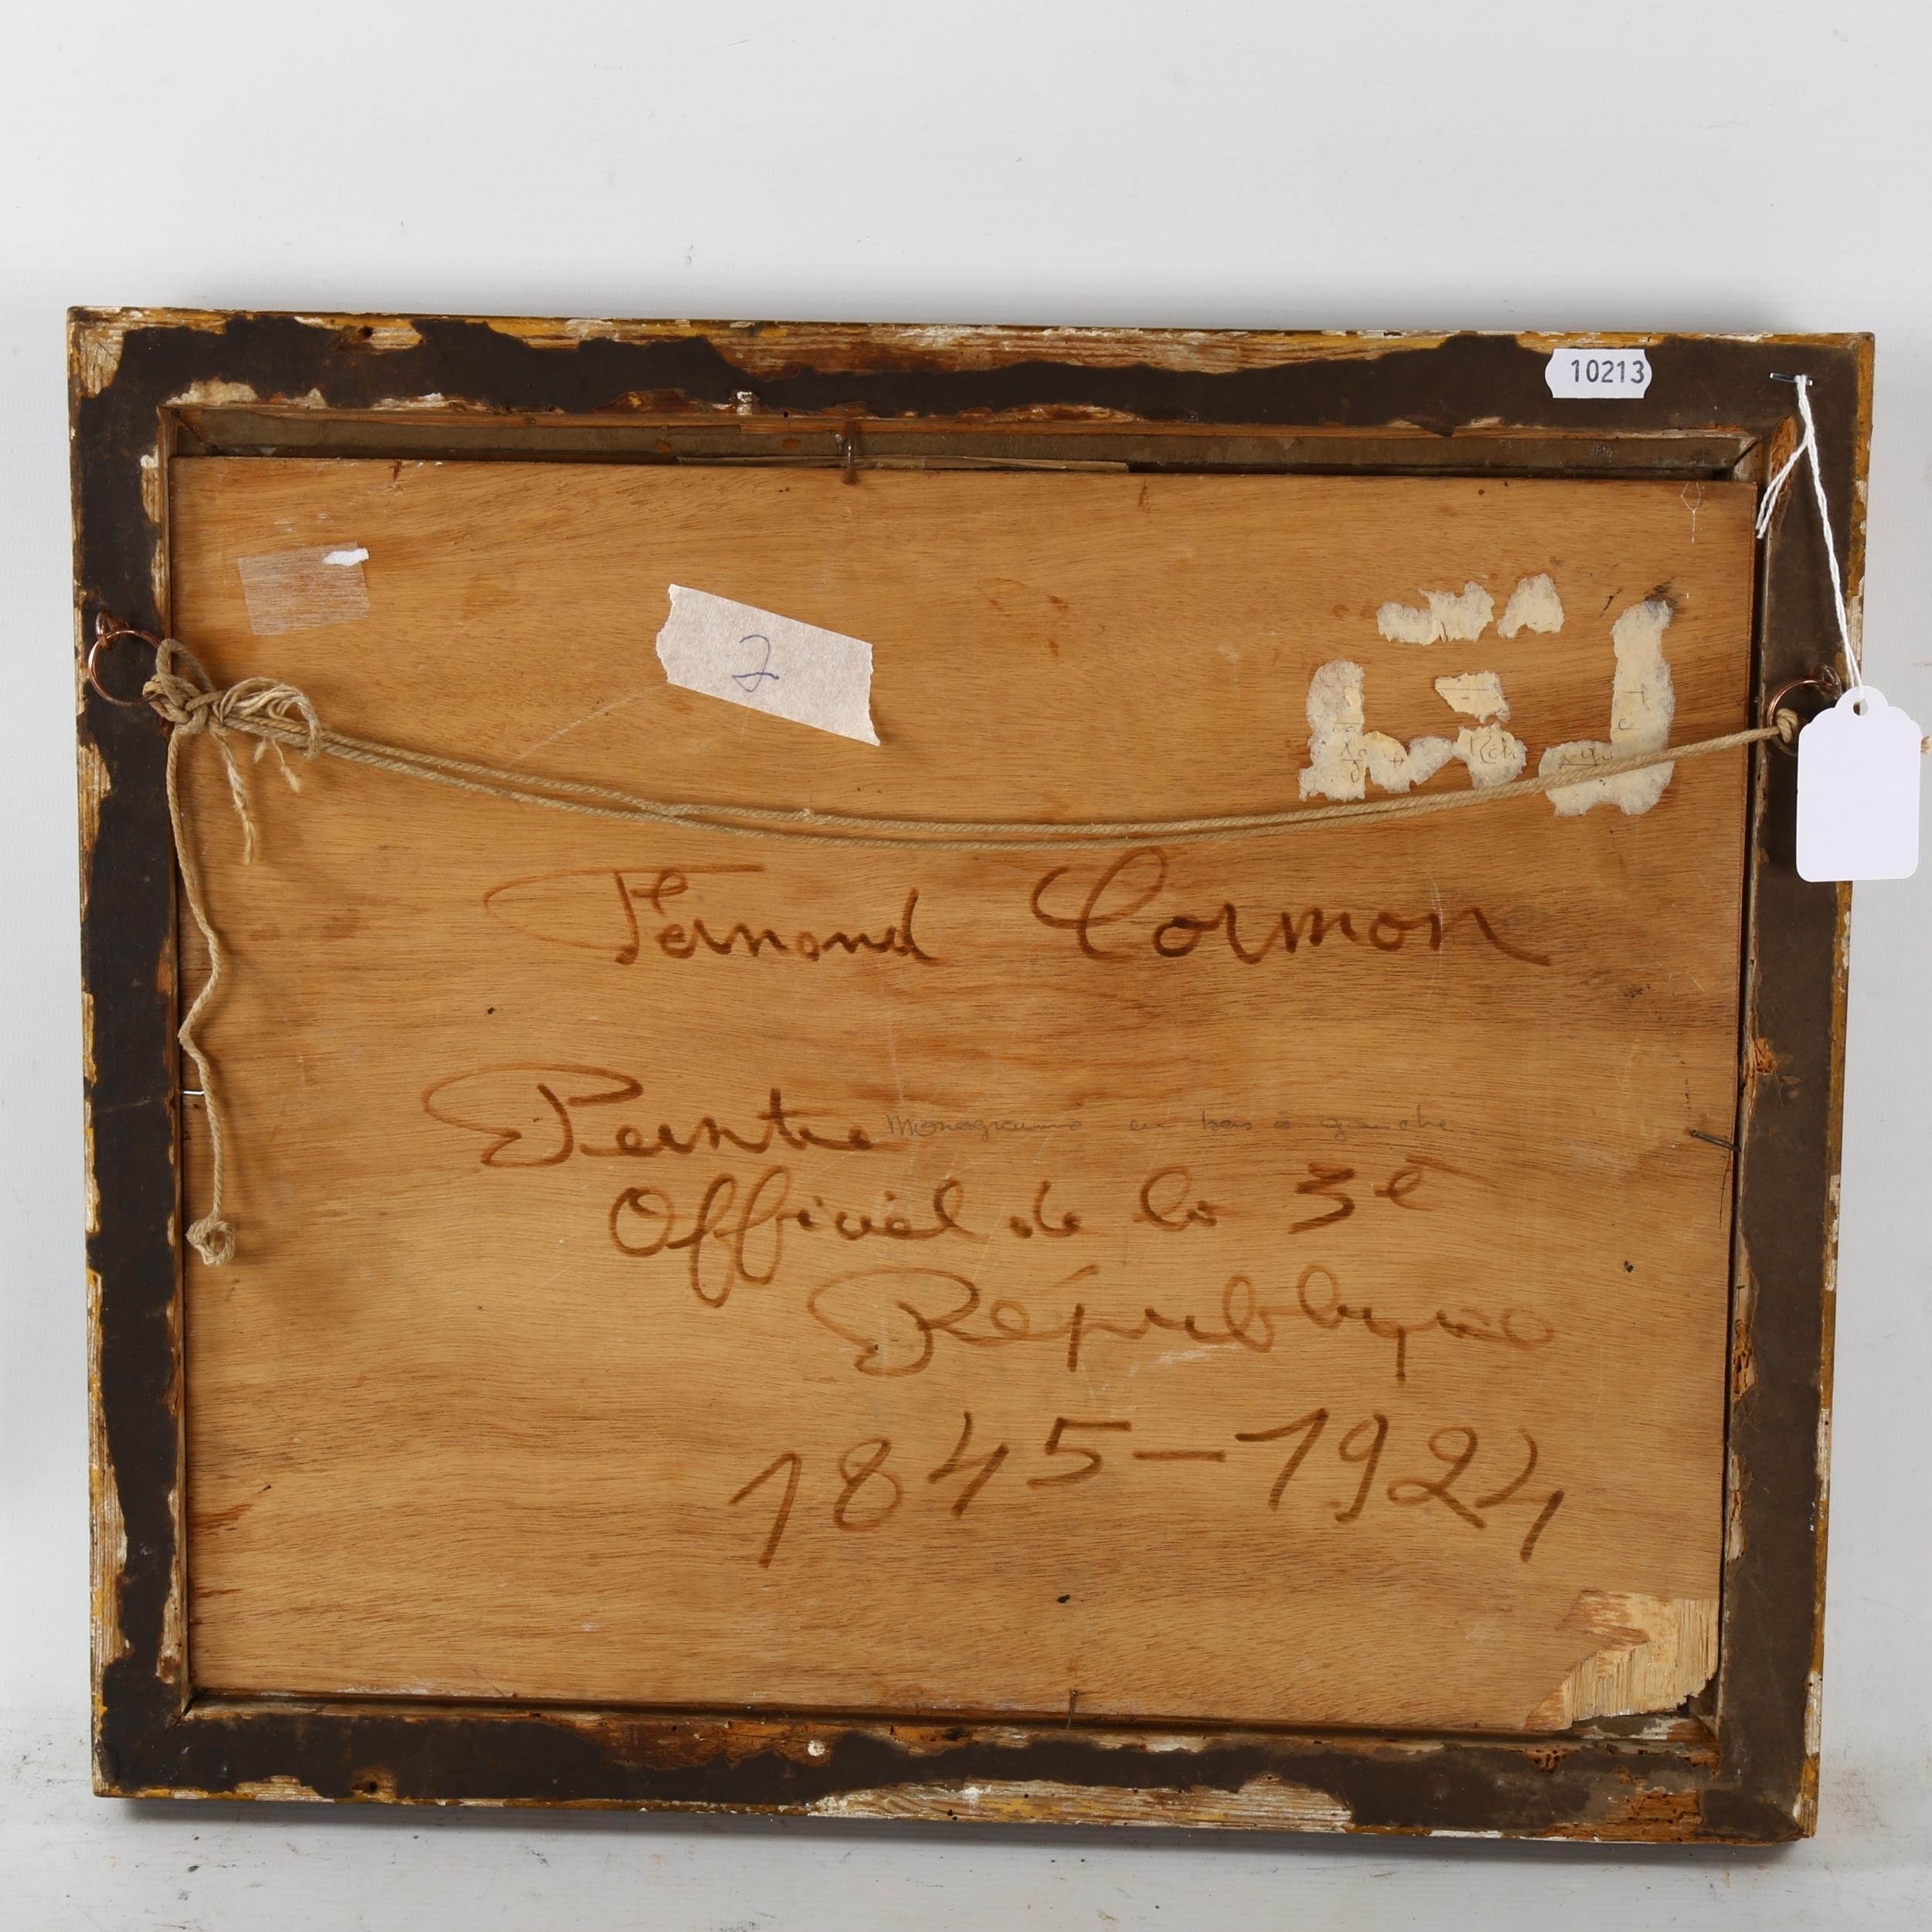 10213
2
Fernand Cormon
Peintre
Monogramme en bas à gauche.
Officiel de la 3e
République
1845-1924